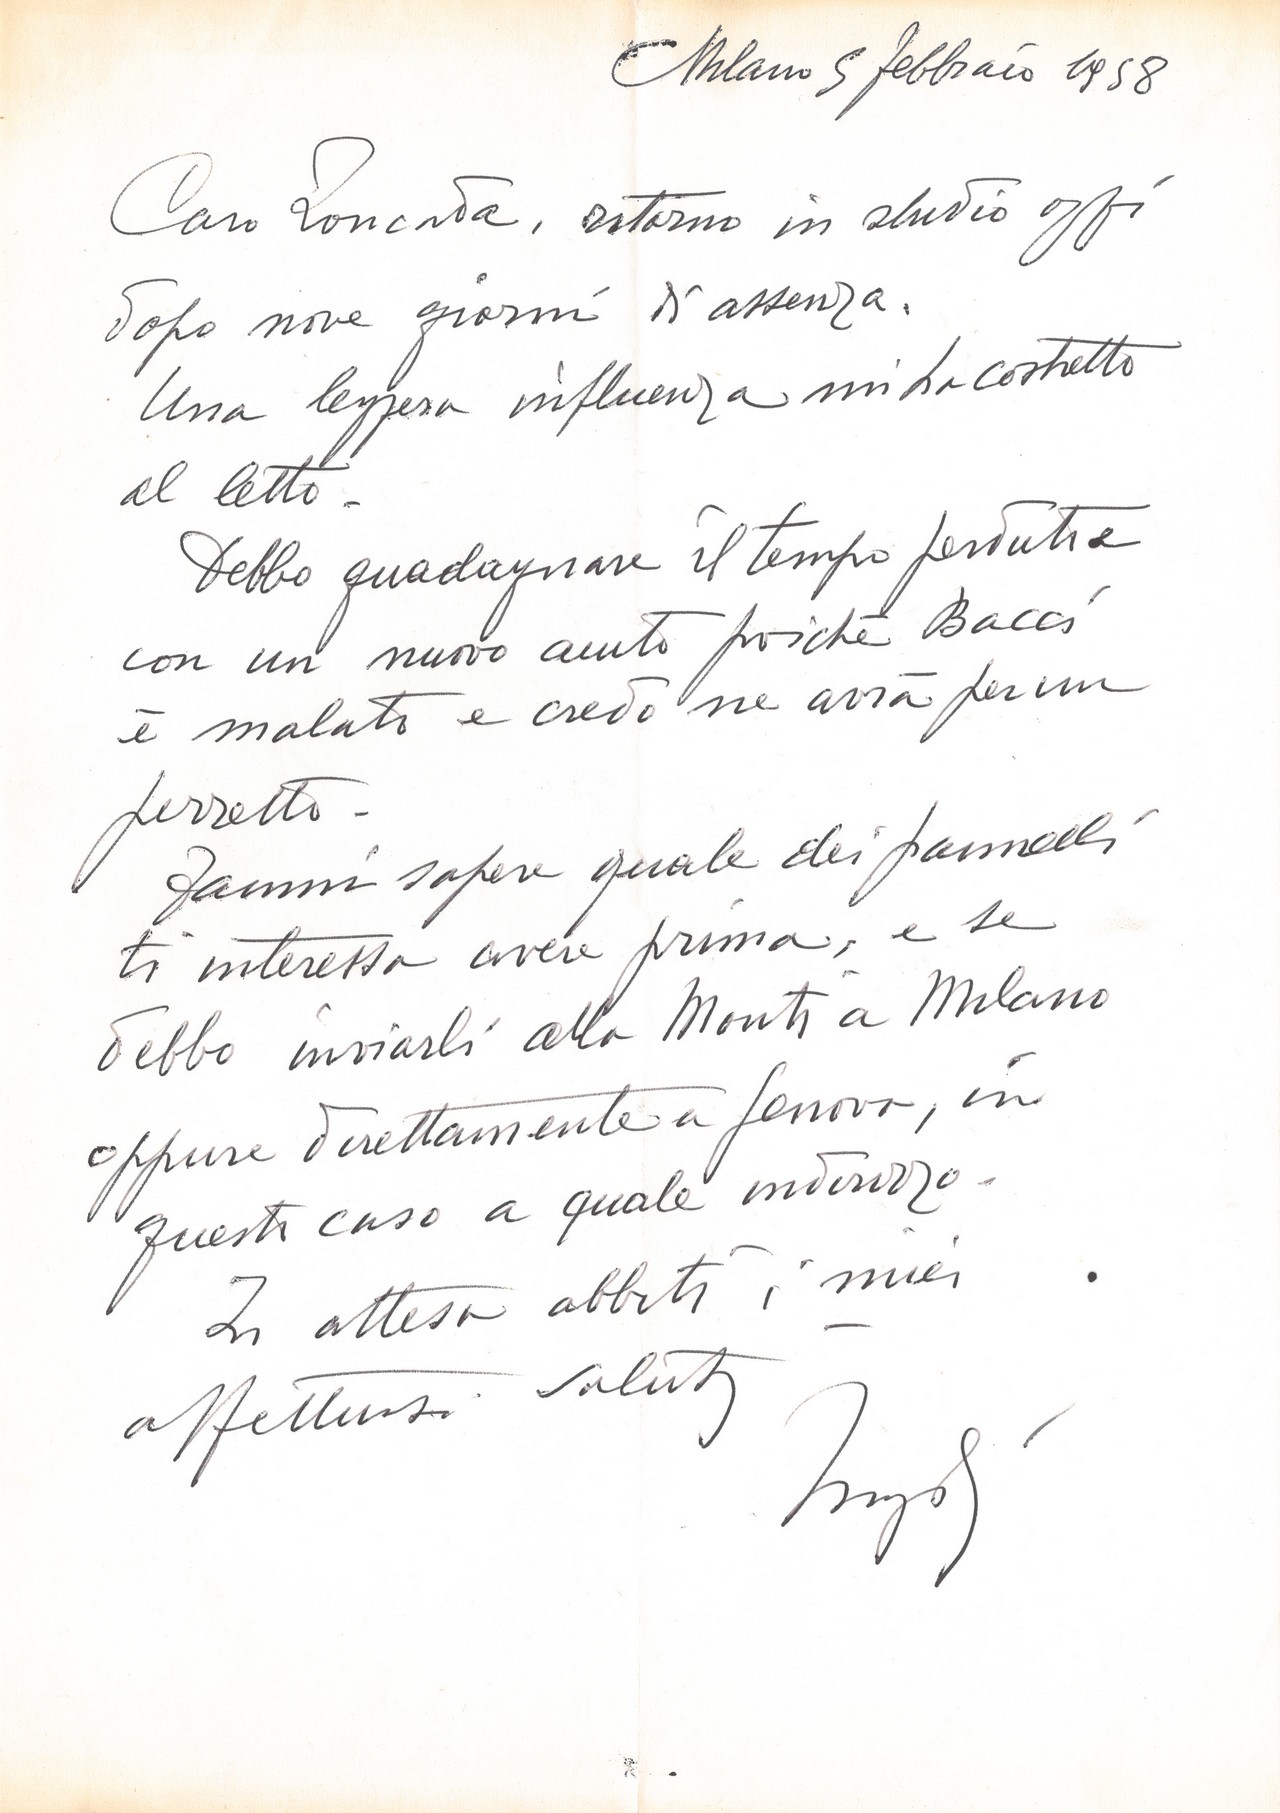 Milano 5 febbraio 1958
Caro Zoncada, ritorno in studio oggi
dopo nove giorni di assenza.
Una leggera influenza mi ha costretto
al letto -
Debbo guadagnare il tempo perduto e
con un nuovo aiuto poichè Bacci
è malato e credo ne avrà per un
pezzetto -
Fammi sapere quale dei pannelli
ti interessa avere prima, e se
debbo inviarli alla Monti a Milano
oppure direttamente a Genova, in
questo caso a quale indirizzo -
In attesa abbiti i miei
affettuosi saluti